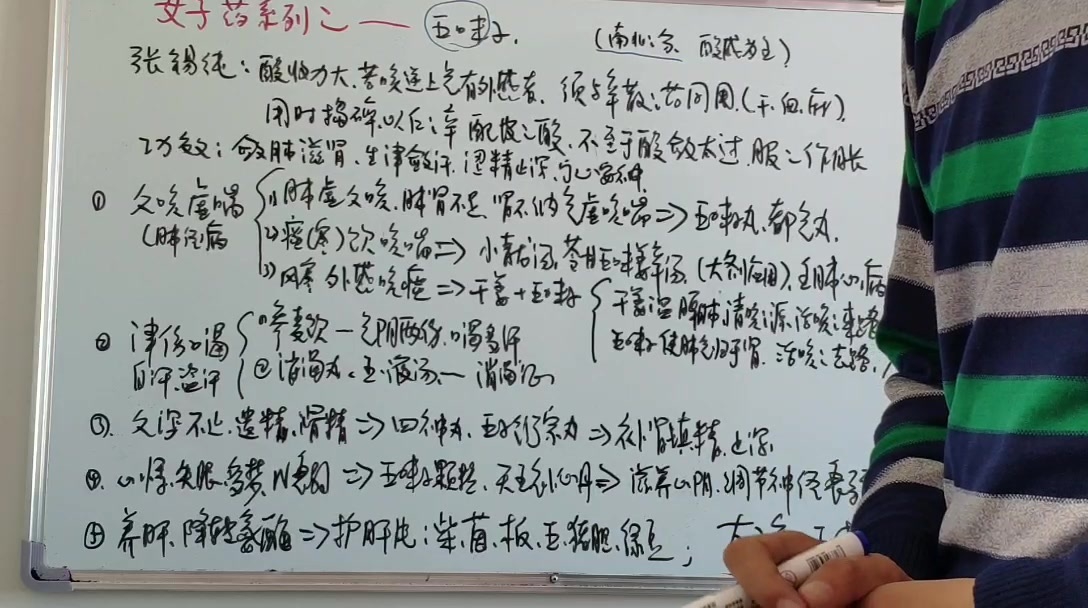 女子药系列之一——五味子. (南北之分 酸咸为主)
张锡纯:酸收力大.若咳逆上气有外感者.须与辛散之药同用.(干.细.麻).
用时捣碎.以后之辛配皮之酸.不至于酸敛太过.服之作胀
功效:敛肺滋肾.生津敛汗.涩精止泻.宁心安神.
① 久咳虚喘 (1)肺虚久咳.肺肾不足.肾不纳气虚咳喘⇒五味子丸.都气丸.
(肺经病 (2)痰(寒)饮咳喘⇒小青龙汤.苓甘五味姜辛汤.(大剂应用).主肺心病
(3)风寒外感咳痰⇒干姜+五味子 干姜温脾肺.清咳之源.治咳之来路
五味子使肺气归于肾.治咳之去路.
② 津伤口渴 (1)参麦饮—气阴两伤.口渴多汗
自汗.盗汗 ②消渴丸.玉液汤.—消渴证
③. 久泻不止.遗精.滑精⇒四神丸.五子衍宗丸⇒补肾填精.止泻.
④. 心悸.失眠.多梦.⇒五味子颗粒.天王补心丹⇒滋养心阴.调节神经衰
⑤ 养肝.降转氨酶⇒护肝片:柴.茵.板.五.猪胆.绿豆;